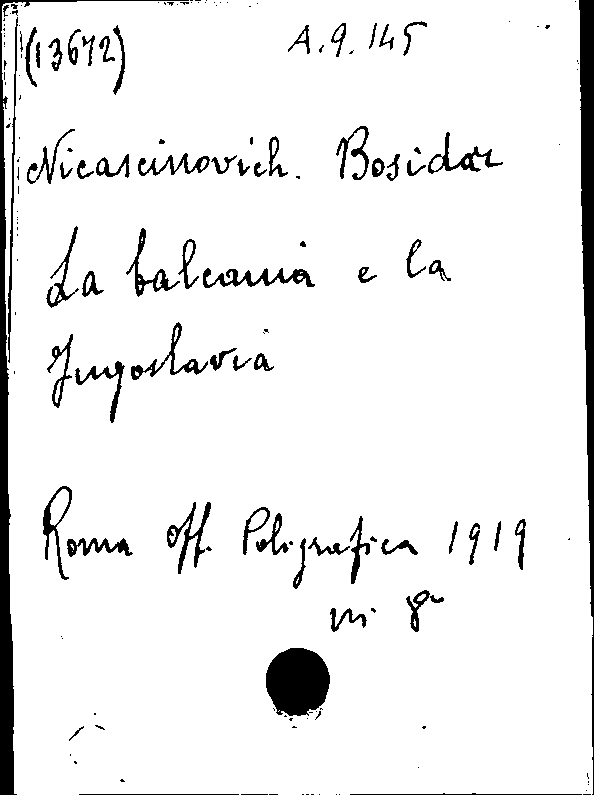 (13672) A.9.145
Nicascinovich. Bosidar
La balcania e la
Jugoslavia
Roma Off. Poligrafica 1919
in 8°